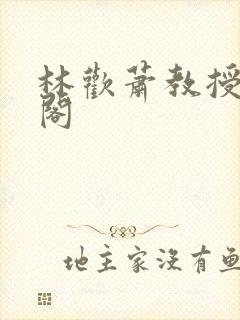 林歡蕭教授
閣
地主家没有鱼